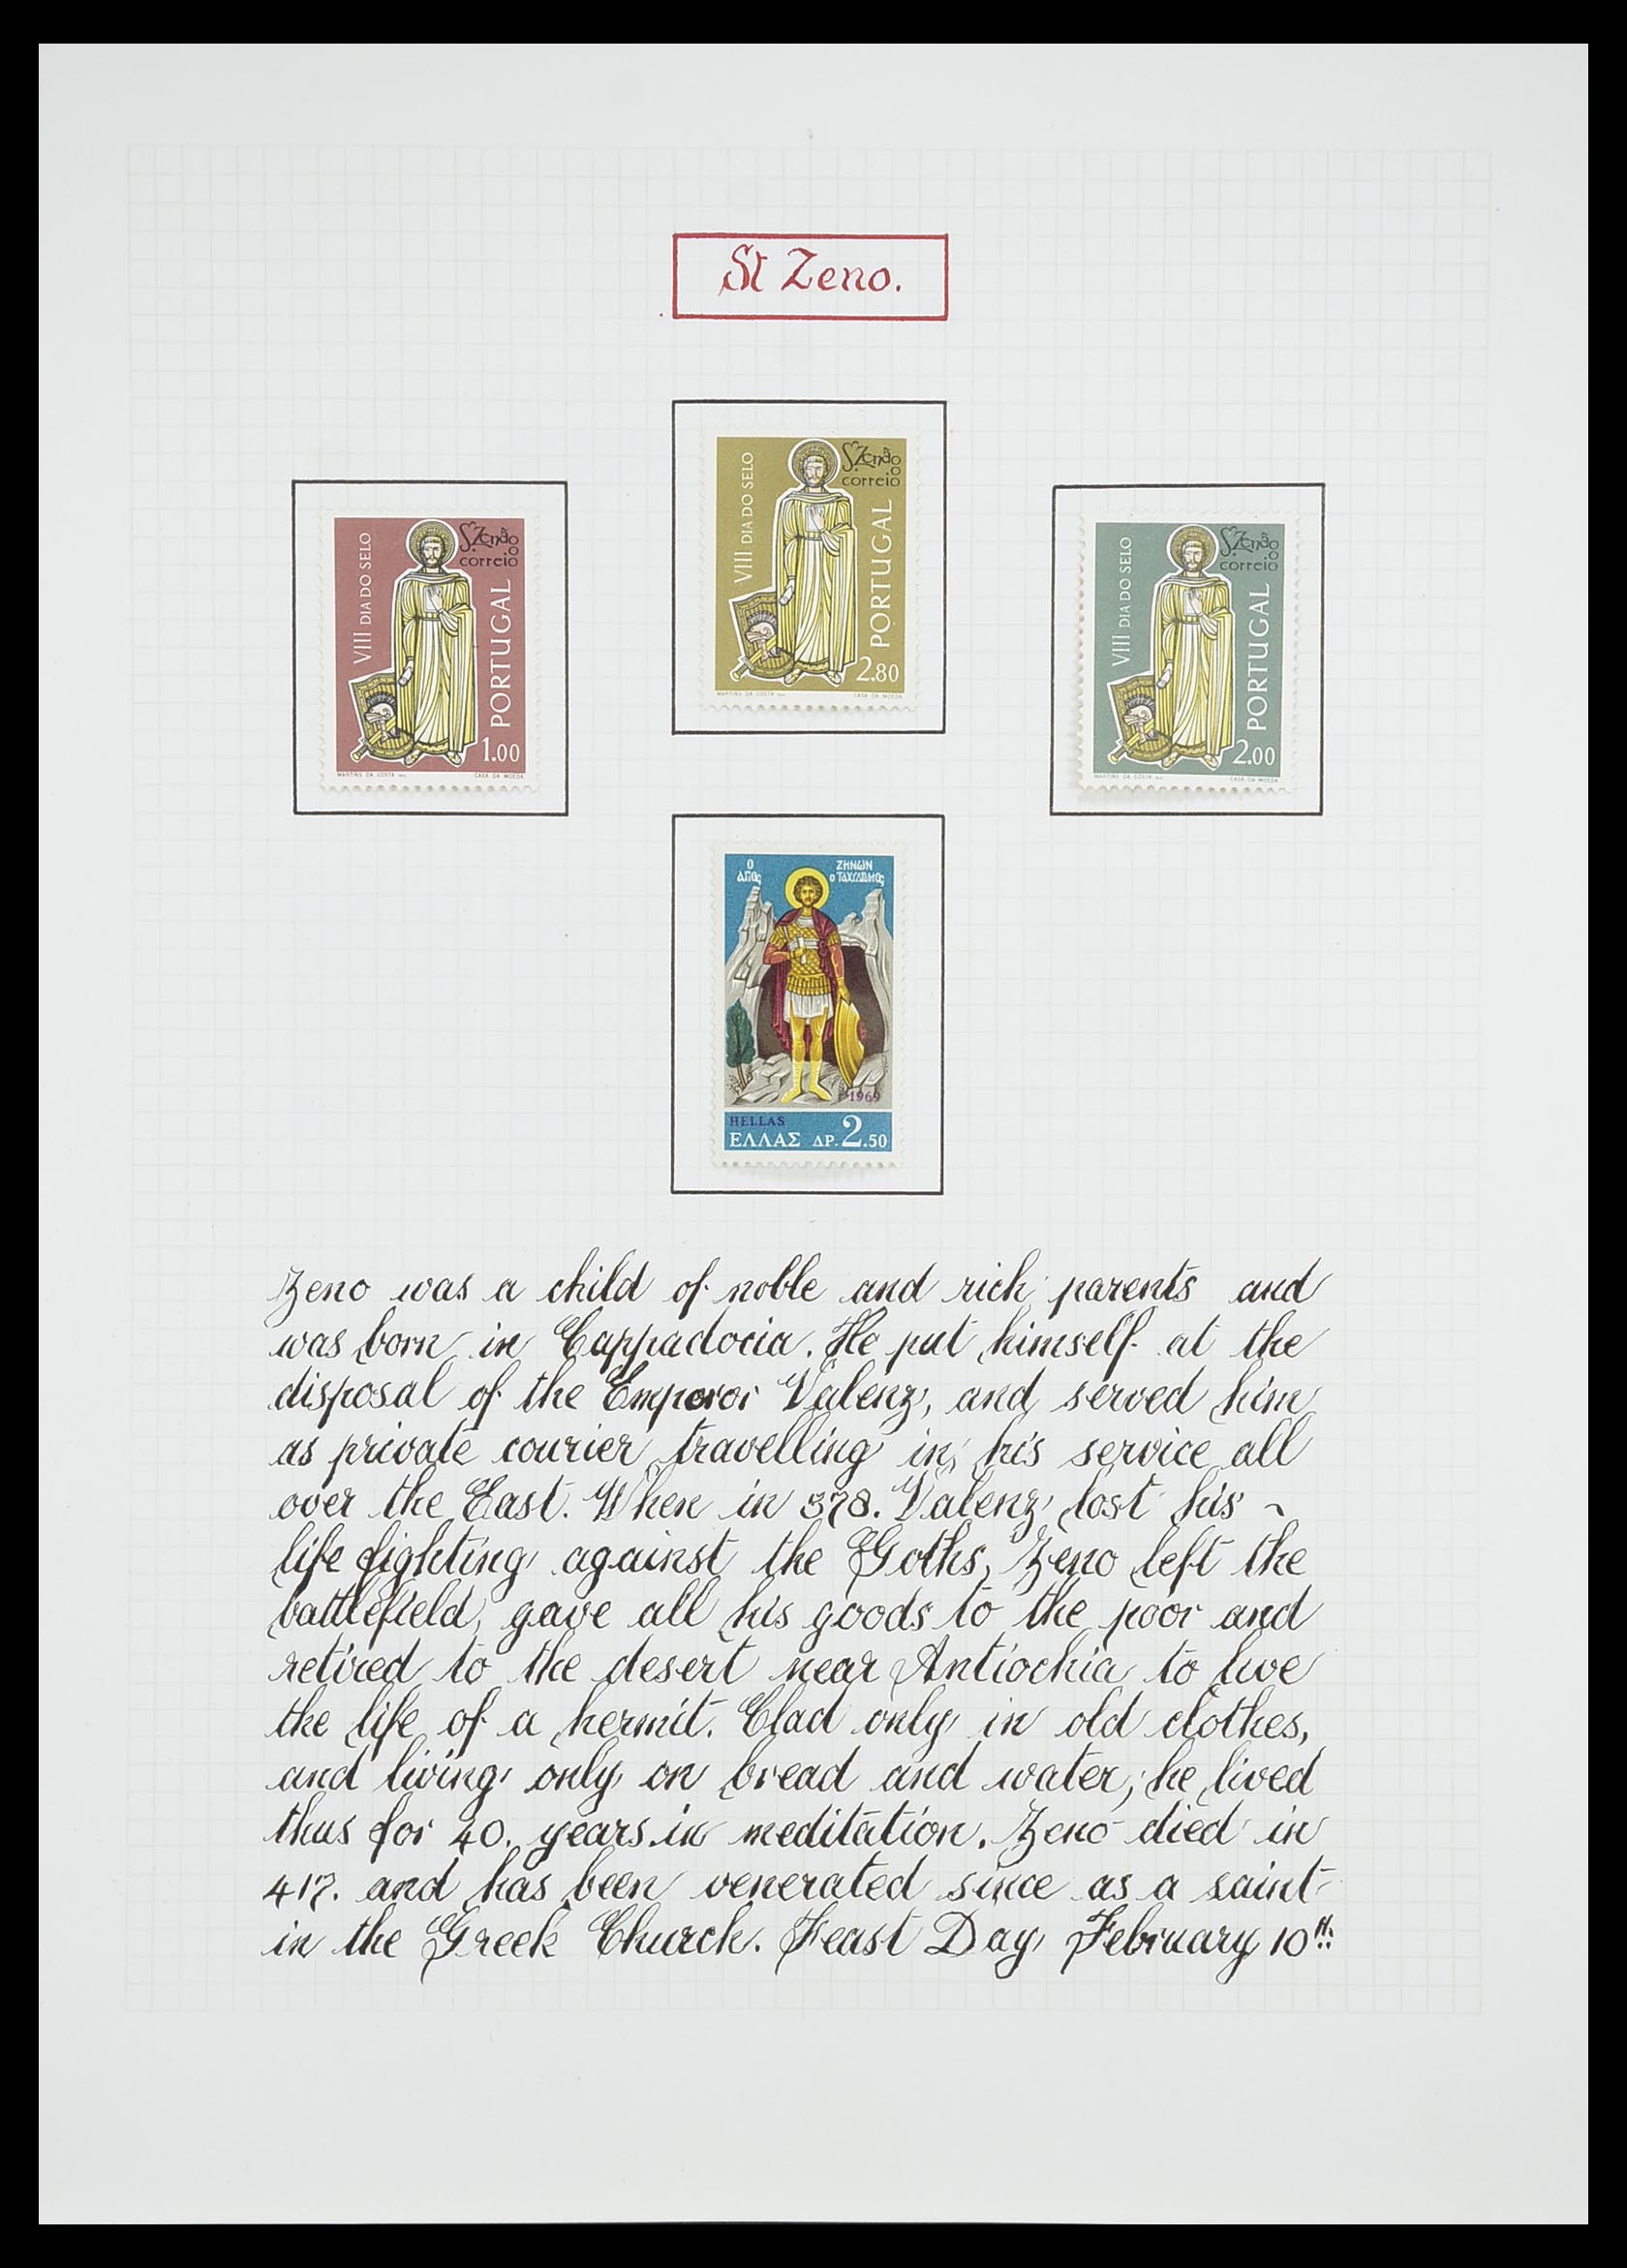 St Zeno.
VIII DIA DO SELO
S. Zenão
o
correio
PORTUGAL
1.00
MARTINS DA COSTA
CASA DA MOEDA
VIII DIA DO SELO
S. Zenão
o
correio
PORTUGAL
2.80
MARTINS DA COSTA
CASA DA MOEDA
VIII DIA DO SELO
S. Zenão
o
correio
PORTUGAL
2.00
MARTINS DA COSTA
CASA DA MOEDA
Ο ΖΗΝΩΝ
ΑΓΙΟς Ο ΤΑΧΥΔΡΟΜΟς
1969
HELLAS
ΕΛΛΑΣ ΔΡ. 2.50
Zeno was a child of noble and rich parents and
was born in Cappadocia. He put himself at the
disposal of the Emperor Valenz, and served him
as private courier travelling in his service all
over the East. When in 378. Valenz lost his ~
life fighting against the Goths, Zeno left the
battlefield, gave all his goods to the poor and
retired to the desert near Antiochia to live
the life of a hermit. Clad only in old clothes,
and living only on bread and water, he lived
thus for 40. years in meditation. Zeno died in
417. and has been venerated since as a saint
in the Greek Church. Feast Day February 10th